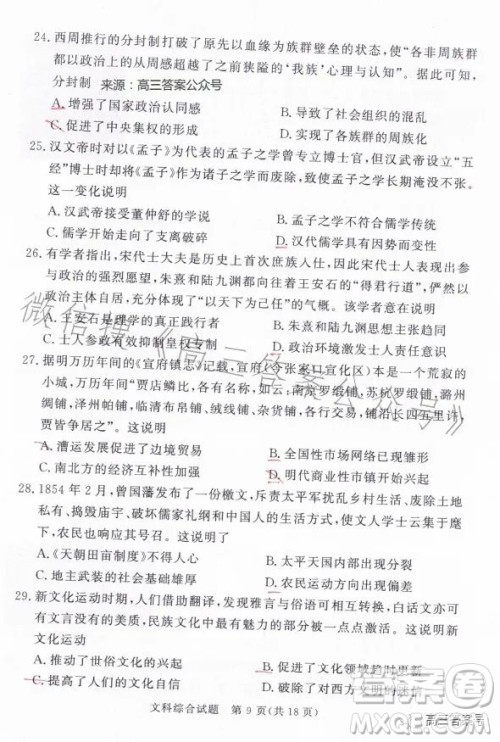 24. 西周推行的分封制打破了原先以血缘为族群壁垒的状态,使“各非周族群
都以政治上的周感超越了之前狭隘的‘我族’心理与认知”。据此可知,
分封制 来源:高三答案公众号
A. 增强了国家政治认同感 B. 导致了社会组织的混乱
C. 促进了中央集权的形成 D. 实现了各族群的周族化
25. 汉文帝时对以《孟子》为代表的孟子之学曾专立博士官,但汉武帝设“五
经”博士时却将《孟子》作为诸子之学而废除,致使孟子之学长期淹没不张。
这一变化说明
A. 汉武帝接受董仲舒的学说 B. 孟子之学不符合儒学传统
C. 儒学开始走向了支离破碎 D. 汉代儒学具有因势而变性
26. 有学者指出,宋代士大夫是历史上首次庶族入仕,因此宋代士人表现出参与
政治的强烈愿望,朱熹和陆九渊都十分向往王安石的“得君行道”,俨然以
政治主体自居,表现出“以天下为己任”的气概。该学者意在说明
A. 王安石是理学的真正践行者 B. 朱熹和陆九渊思想主张趋同
C. 士人参政有效抑制皇权专制 D. 政治环境激发士人责任意识
27. 据明万历年间的《宣府镇志》记载,宣府(今张家口宣化区)本是一个荒寂的
小城,万历年间“贾店鳞比,各有名称,如云:南京罗缎铺、苏杭罗缎铺、潞州
绸铺、泽州帕铺、临清布帛铺、绒线铺、杂货铺,各行交易铺长四五里许,
贾皆争居之”。这说明
A. 漕运发展促进了边境贸易 B. 全国性市场网络已现雏形
C. 南北方的经济互补性增强 D. 明代商业性市镇开始兴起
28. 1854 年 2 月,曾国藩发布了一份檄文,斥责太平军扰乱乡村生活、废除土地
私有、捣毁庙宇、破坏儒家礼纲和中国的生活方式,使文人学士云集于麾
下,农民也响应其号召。这可用于说明
A.《天朝田亩制度》不得人心 B. 太平天国内部出现分裂
C. 地主武装的社会基础雄厚 D. 农民运动出现方向偏差
29. 新文化运动时期,人们借助翻译,发现雅言与俗语可实现相互转化,白话文亦可
有文言没有的美质,民族文化中最有魅力的部分被一点点激活。这说明新
文化运动
A. 推动了世俗文化的兴起 B. 促进了文化领域趋时更新
C. 转变了民众的文化观念 D. 破除了对西方文明的迷信
文科综合试题 第 9 页(共 18 页)
微信搜《高三答案公众号》
高三答案号
答案圈
MXQE.COM